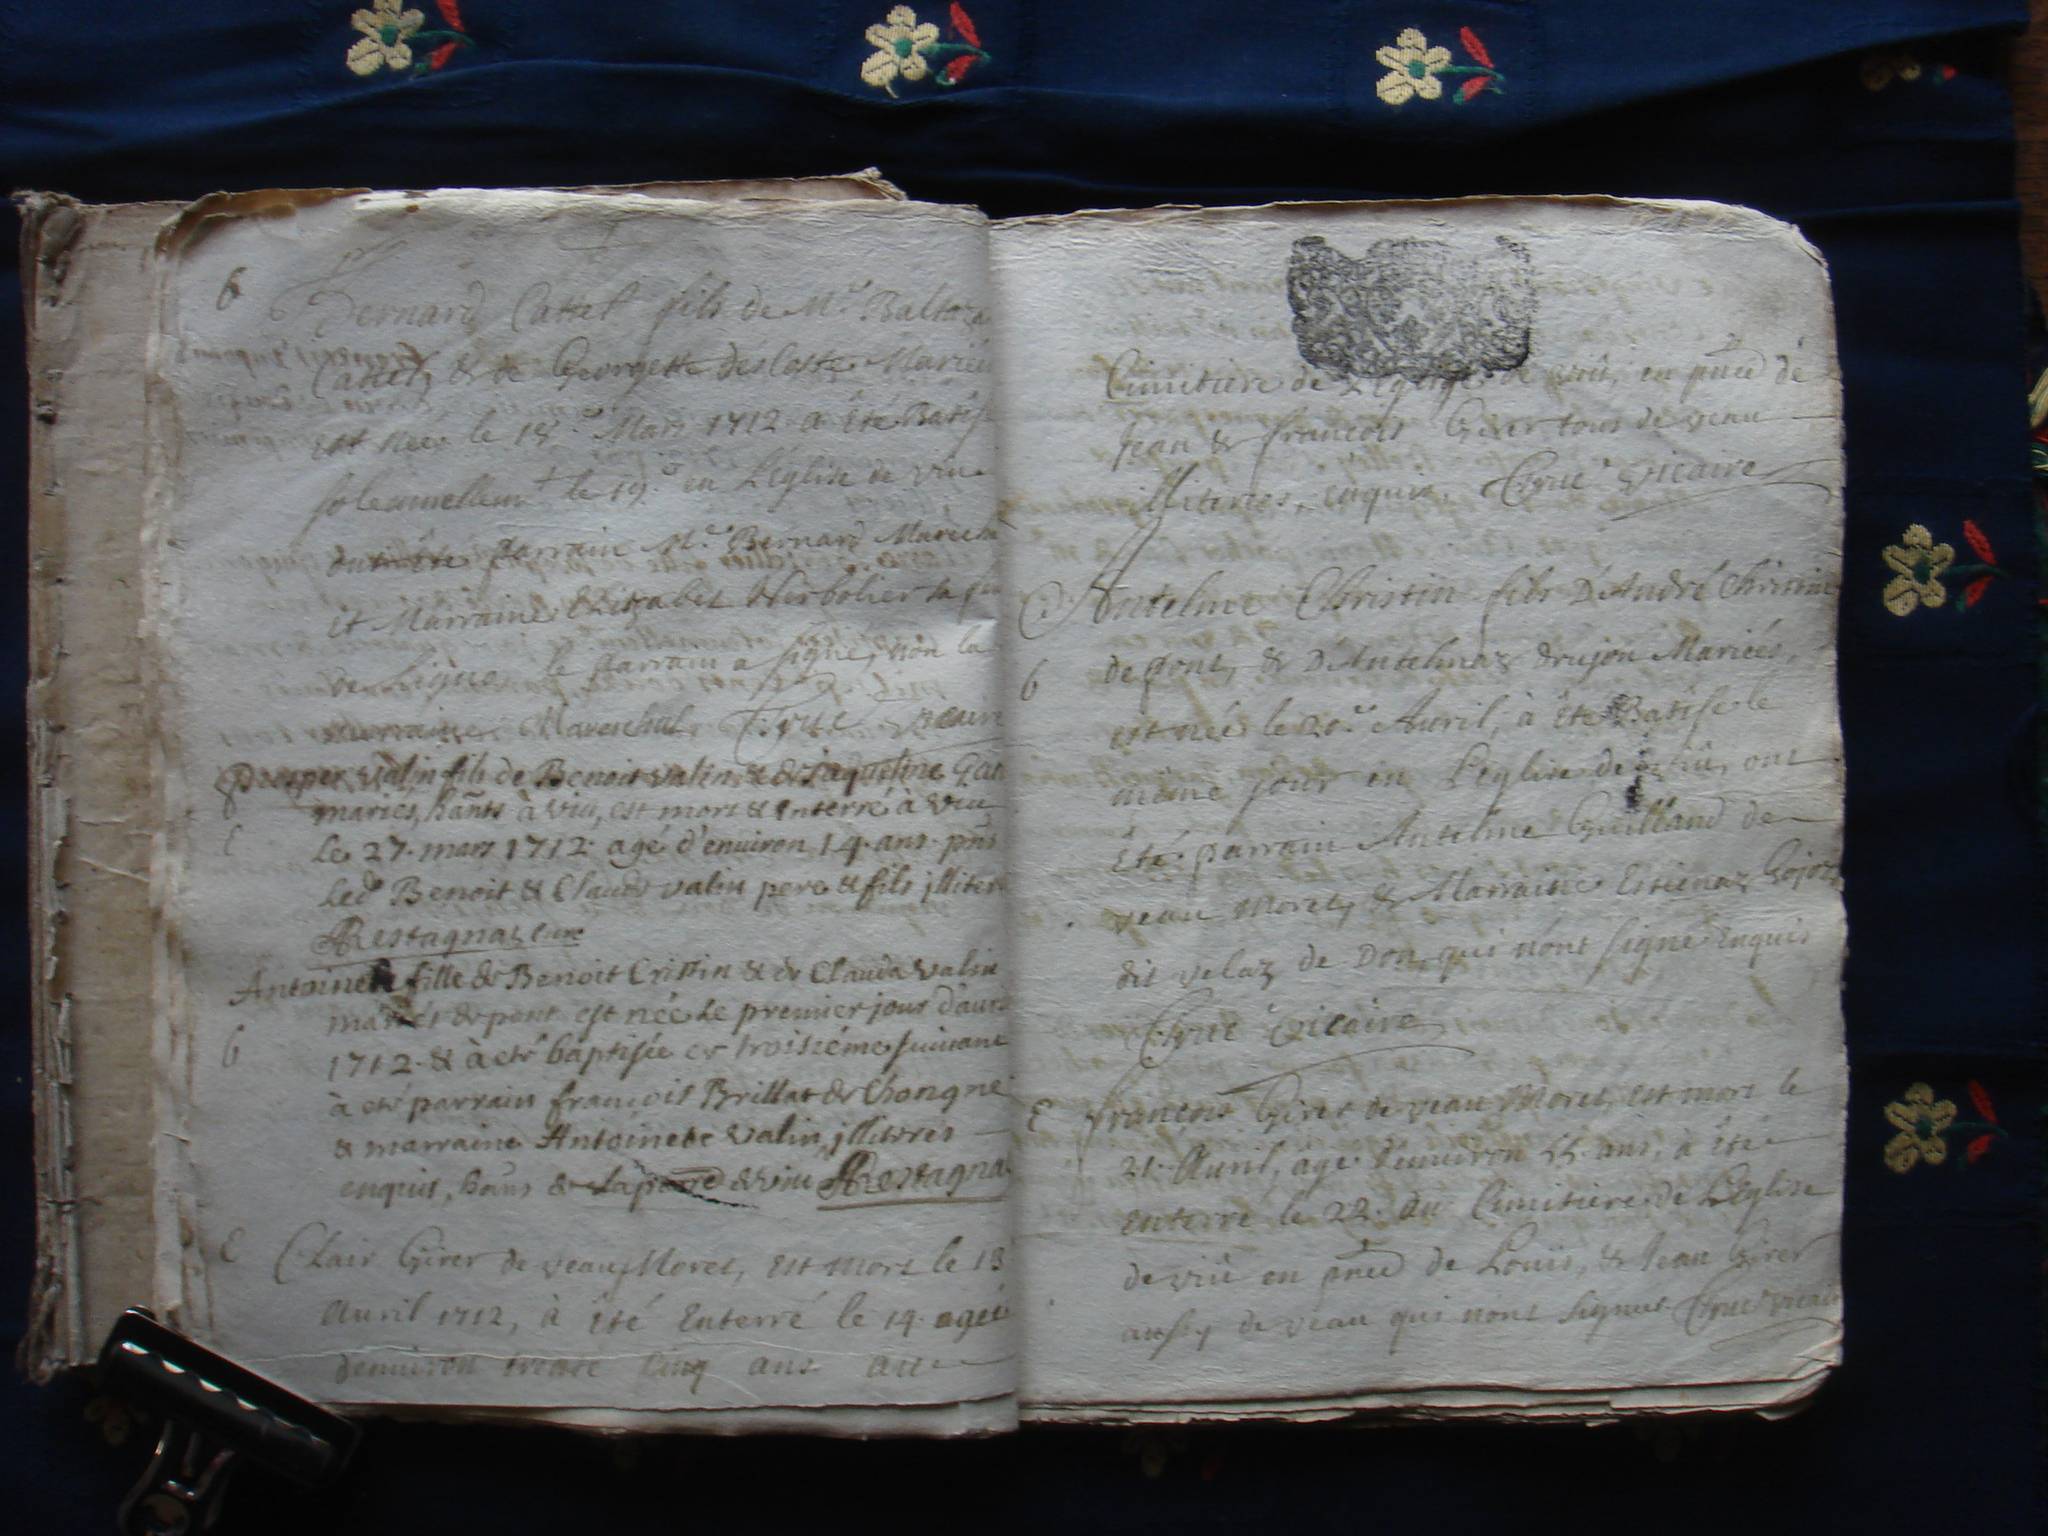 B
Bernard Cattel fils de Mr. Baltaza
Cattel, & de Georgette des Coste Mariés
Est née le 18e. Mars 1712 a Eté Batisé
solemnellemt le 19e en L'eglise de viu
ont été parrain Mr. Bernard Marécha
et Marraine Elizabet sa
de signe le parrain a signé, non la
marraine Mareschal, vicaire
Prosper valin fils de Benoit valin & de Jaqueline
mariés, hants à viu, est mort & enterré à viu
E le 27. mars 1712. agé d'enuiron 14. ans. pnts
led. Benoit & Claude valin pere & fils jlliter
Restagnat curé
Antoinete fille de Benoit Cristin & de Clauda valin
mariés de pont est née le premier jour d'auri
B 1712. & à eté baptisée ce troisiéme suiuant
à eté parrain françois Brillat de Chongne
& marraine Antoinete valin, jlliteres
enquis, hants de & viu Restagna
E Clair Girer de veau Moret, Est mort le 13
Auril 1712, à Eté Enterré le 14. agé
denuiron trente cinq ans au
Cimitiere de L'Eglise de viû, en pnce de
Jean & françois Girer tous de veau
illiteres, enquis, vicaire
Antelme Christin fils D'André Christin
B de pont, & D'Antelmaz drujon Mariés,
est née le 20e. Auril, à Eté Batisé le
méme jour en L'eglise de viû, ont
Eté. parrain Antelme Guilland de
veau Moret, & Marraine Estienaz Gojoz
dit velaz de Don, qui n'ont signé Enquis
vicaire
E françois Girer de veau Moret, est mort le
21. Auril, agé denuiron 55. ans, à Eté
enterré le 22. au Cimitiere de L'Eglise
de viû en pnce de Louis, & Jean Girer
aussy de veau qui n'ont signés. vicaire